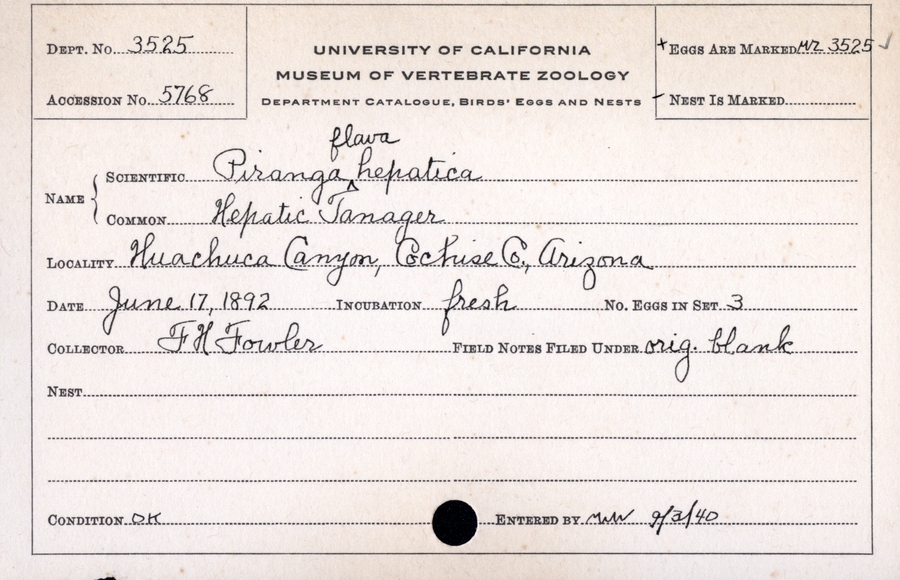 Dept. No. 3525
Accession No. 5768
UNIVERSITY OF CALIFORNIA
MUSEUM OF VERTEBRATE ZOOLOGY
Department Catalogue, Birds' Eggs and Nests
+ Eggs Are Marked 3525 ✓
- Nest Is Marked
flava
Name { Scientific Piranga ^ hepatica
Common Hepatic Tanager
Locality Huachuca Canyon, Cochise Co., Arizona
Date June 17, 1892 Incubation fresh No. Eggs in Set 3
Collector F H Fowler Field Notes Filed Under orig. blank
Nest
Condition OK Entered by 9/3/40